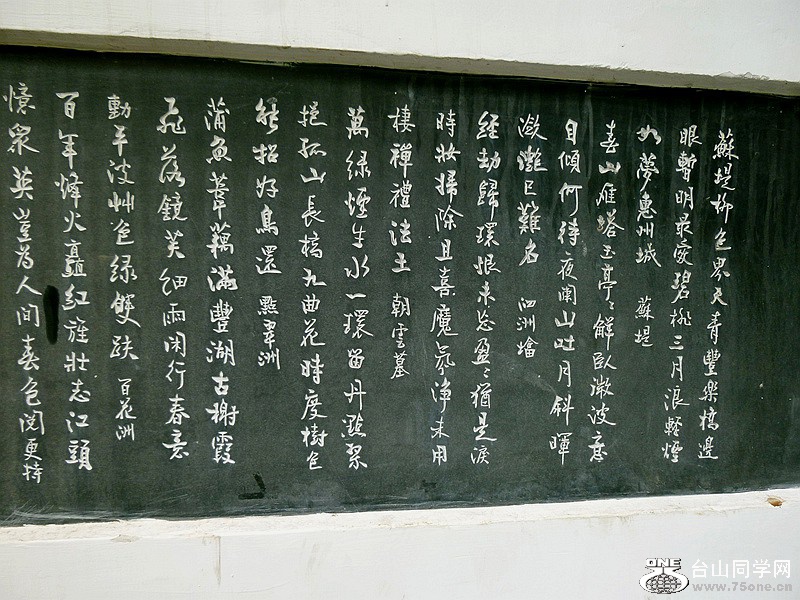 蘇堤柳色界天青豐樂橋邊
眼暫明最愛碧桃三月浪輕煙
如夢惠州城 蘇堤
春山雁塔玉亭亭解臥漪波意
自傾何待夜闌山吐月斜暉
瀲灧已難名 泗洲塔
經劫歸環恨未忘盈盈猶是淚
時妝掃除且喜魔氛淨未用
棲禪禮法王 朝雲墓
萬綠煙生水一環留丹點翠
挹孤山長橋九曲花時度樹色
能招好鳥還 點翠洲
蒲魚葦藕滿豐湖古榭霞
飛落鏡芙細雨閑行春意
動平波艸色綠雙趺 百花洲
百年烽火矗紅旌壯志江頭
憶衆英豈为人间春色閱更持
ONE
台山同学网
www.75one.cn